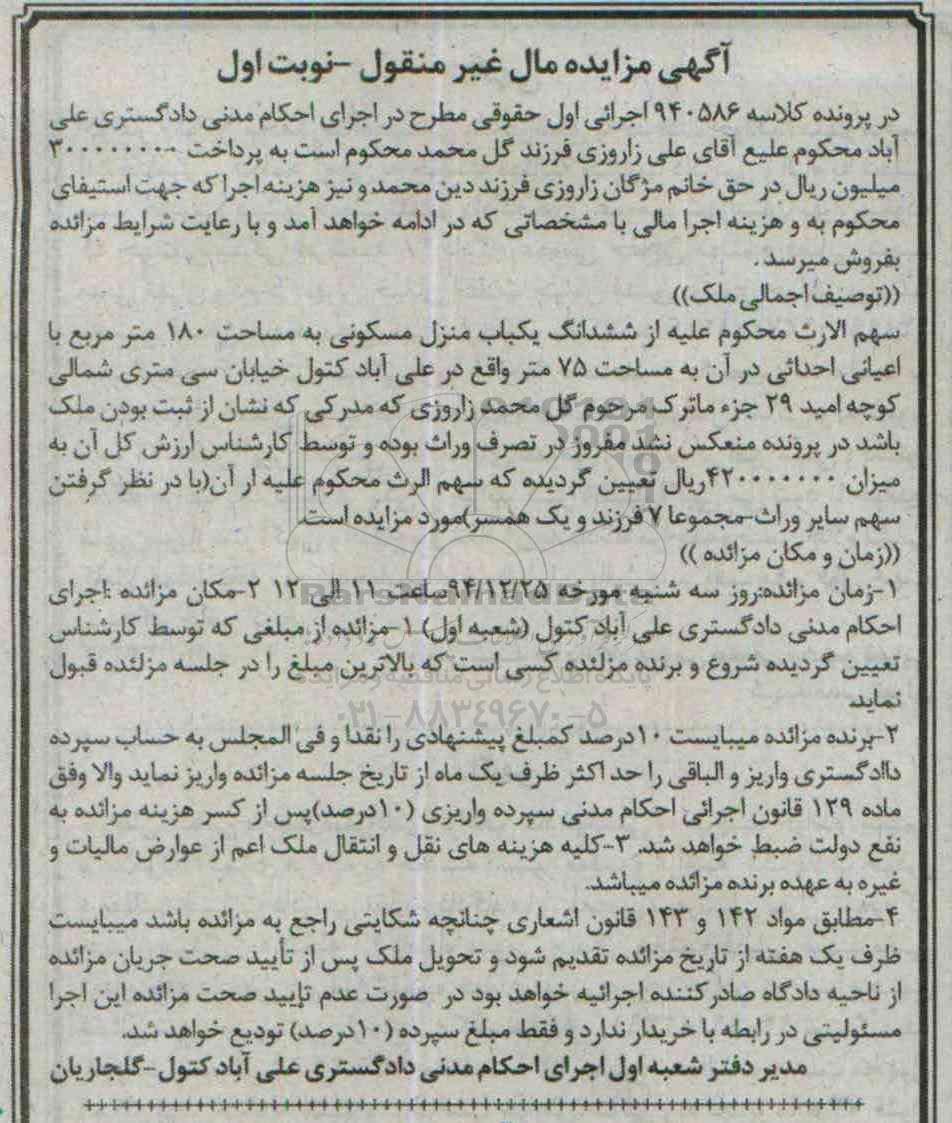 آگهی مزایده مال غیر منقول -نوبت اول
در پرونده کلاسه ۹۴۰۵۸۶ اجرائی اول حقوقی مطرح در اجرای احکام مدنی دادگستری علی
آباد محکوم علیع آقای علی زاروزی فرزند گل محمد محکوم است به پرداخت ۳۰۰۰۰۰۰۰۰
میلیون ریال در حق خانم مژگان زاروزی فرزند دین محمد و نیز هزینه اجرا که جهت استیفای
محکوم به و هزینه اجرا مالی با مشخصاتی که در ادامه خواهد آمد و با رعایت شرایط مزائده
بفروش میرسد.
((توصیف اجمالی ملک))
سهم الارث محکوم علیه از ششدانگ یکباب منزل مسکونی به مساحت ۱۸۰ متر مربع با
اعیانی احداثی در آن به مساحت ۷۵ متر واقع در علی آباد کتول خیابان سی متری شمالی
کوچه امید ۲۹ جزء ماترک مرحوم گل محمد زاروزی که مدرکی که نشان از ثبت بودن ملک
باشد در پرونده منعکس نشد مفروز در تصرف وراث بوده و توسط کارشناس ارزش کل آن به
میزان ۴۲۰۰۰۰۰۰۰ریال تعیین گردیده که سهم الرث محکوم علیه ار آن(با در نظر گرفتن
سهم سایر وراث-مجموعا ۷ فرزند و یک همسر)مورد مزایده است.
((زمان و مکان مزائده ))
۱-زمان مزائده:روز سه شنبه مورخه ۹۴/۱۲/۲۵ساعت ۱۱ الی ۱۲ ۲-مکان مزائده :اجرای
احکام مدنی دادگستری علی آباد کتول (شعبه اول) ۱-مزائده از مبلغی که توسط کارشناس
تعیین گردیده شروع و برنده مزلئده کسی است که بالاترین مبلغ را در جلسه مزلئده قبول
نماید.
۲-برنده مزائده میبایست ۱۰درصد کمبلغ پیشنهادی را نقدا و فی المجلس به حساب سپرده
داادگستری واریز و الباقی را حد اکثر ظرف یک ماه از تاریخ جلسه مزائده واریز نماید والا وفق
ماده ۱۲۹ قانون اجرائی احکام مدنی سپرده واریزی (۱۰درصد)پس از کسر هزینه مزائده به
نفع دولت ضبط خواهد شد. ۳-کلیه هزینه های نقل و انتقال ملک اعم از عوارض مالیات و
غیره به عهده برنده مزائده میباشد.
۴-مطابق مواد ۱۴۲ و ۱۴۳ قانون اشعاری چنانچه شکایتی راجع به مزائده باشد میبایست
ظرف یک هفته از تاریخ مزائده تقدیم شود و تحویل ملک پس از تأیید صحت جریان مزائده
از ناحیه دادگاه صادر کننده اجرائیه خواهد بود در صورت عدم تایید صحت مزائده این اجرا
مسئولیتی در رابطه با خریدار ندارد و فقط مبلغ سپرده (۱۰درصد) تودیع خواهد شد.
مدیر دفتر شعبه اول اجرای احکام مدنی دادگستری علی آباد کتول-گلجاریان
ParsNamadData
پایگاه اطلاع رسانی مناقصه و مزایده
۰۲۱-۸۸۳۴۹۶۷۰-۵